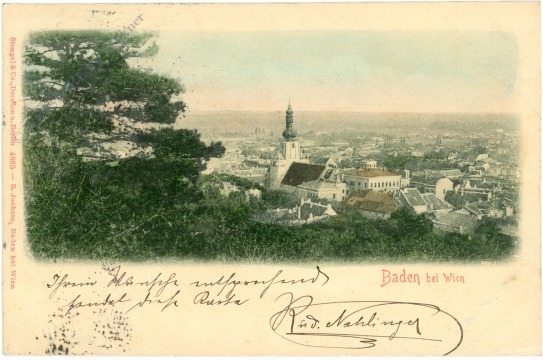 Stengel & Co., Dresden u. Berlin 4865 — R. Jochum, Baden bei Wien
Baden bei Wien
Ihrem Wunsche entsprechend
sendet diese Karte
Rud.